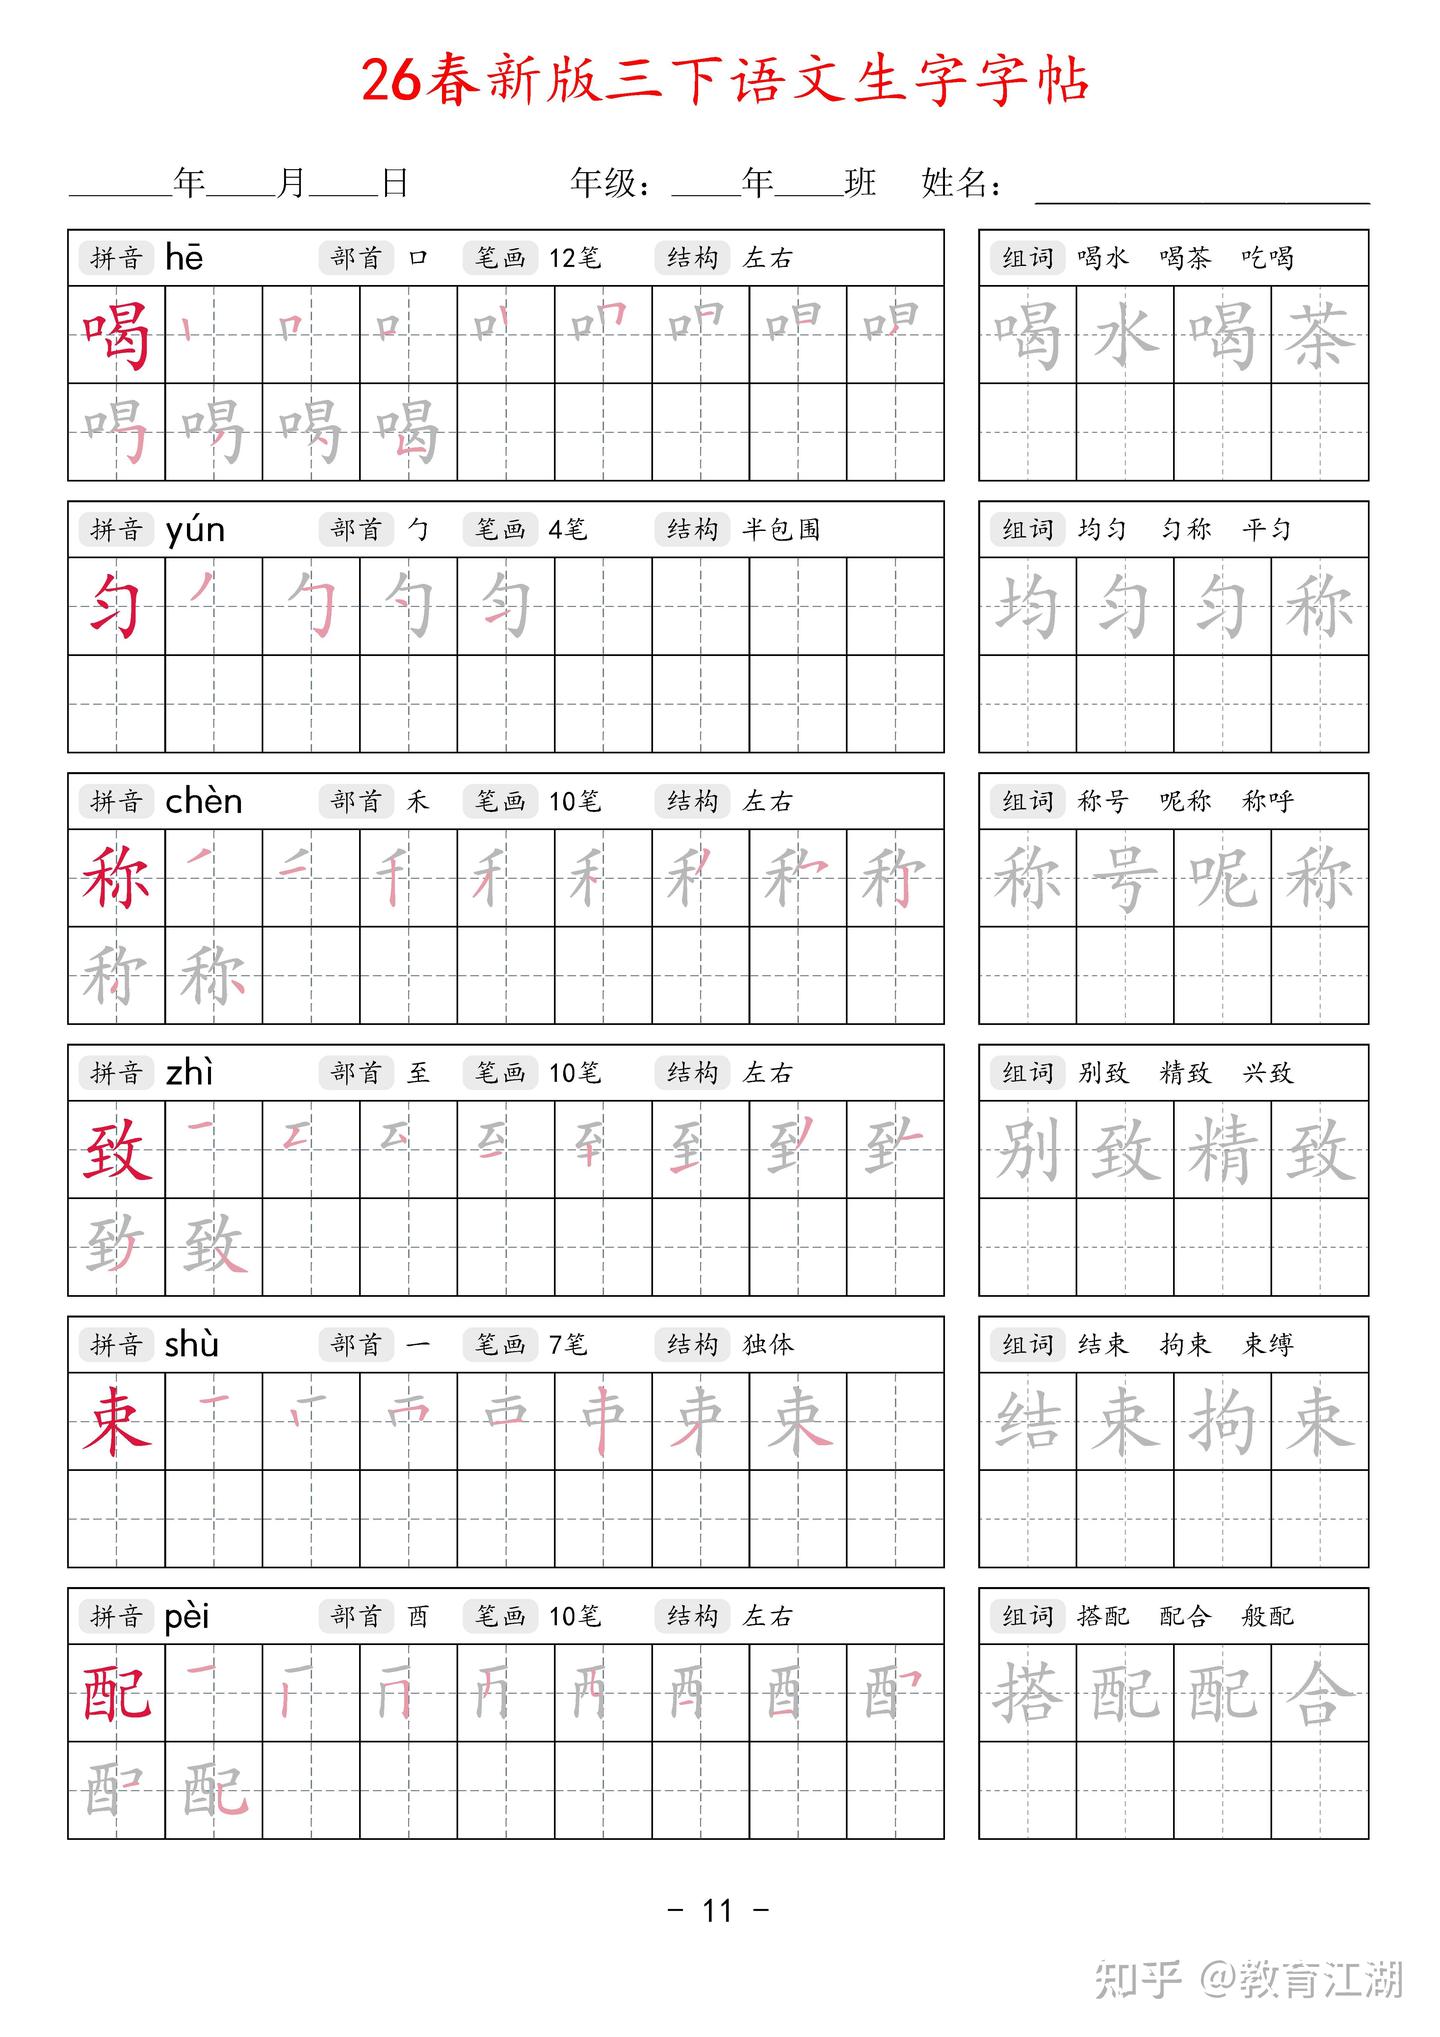 26春新版三下语文生字字帖
______年____月____日 年级：____年____班 姓名：____________________
拼音 hē 部首 口 笔画 12笔 结构 左右 组词 喝水 喝茶 吃喝
喝 喝水喝茶
拼音 yún 部首 勹 笔画 4笔 结构 半包围 组词 均匀 匀称 平匀
匀 均匀匀称
拼音 chèn 部首 禾 笔画 10笔 结构 左右 组词 称号 昵称 称呼
称 称号呢称
称 称
拼音 zhì 部首 至 笔画 10笔 结构 左右 组词 别致 精致 兴致
致 别致精致
致
拼音 shù 部首 一 笔画 7笔 结构 独体 组词 结束 拘束 束缚
束 束 结束拘束
拼音 pèi 部首 酉 笔画 10笔 结构 左右 组词 搭配 配合 般配
配 搭配配合
配
- 11 -
知乎 @教育江湖